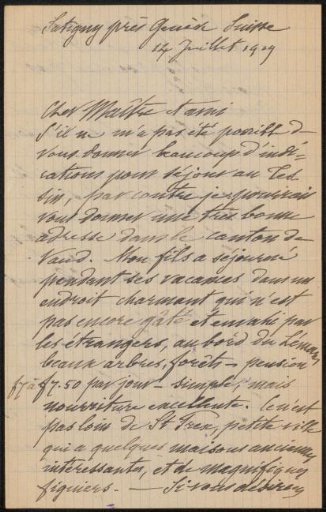 Satigny près Genève Suisse
14 Juillet 1929
Cher Maître et ami
S'il ne m'a pas été possible de
vous donner beaucoup d'indi-
cations pour séjour au Tes-
sin, par contre je pourrais
vous donner une très bonne
adresse dans le canton de
Vaud. Mon fils a séjourné
pendant ses vacances dans un
endroit charmant qui n'est
pas encore gâté et envahi par
les étrangers, au bord du Léman,
beaux arbres, forêts - pension
f 7 à f 7.50 par jour - simple, mais
nourriture excellente. Ce n'est
pas loin de St Prex, petite ville
qui a quelques maisons anciennes
intéressantes, et de magnifiques
figuiers. — Si vous désirez